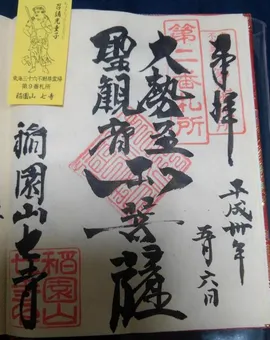 召請光童子
東海三十六不動尊霊場
第九番札所
稲園山 七寺
奉拝
第二番札所
平成卅年
五月六日
大勢至
聖観音
菩薩
稲園山七寺
稲園山